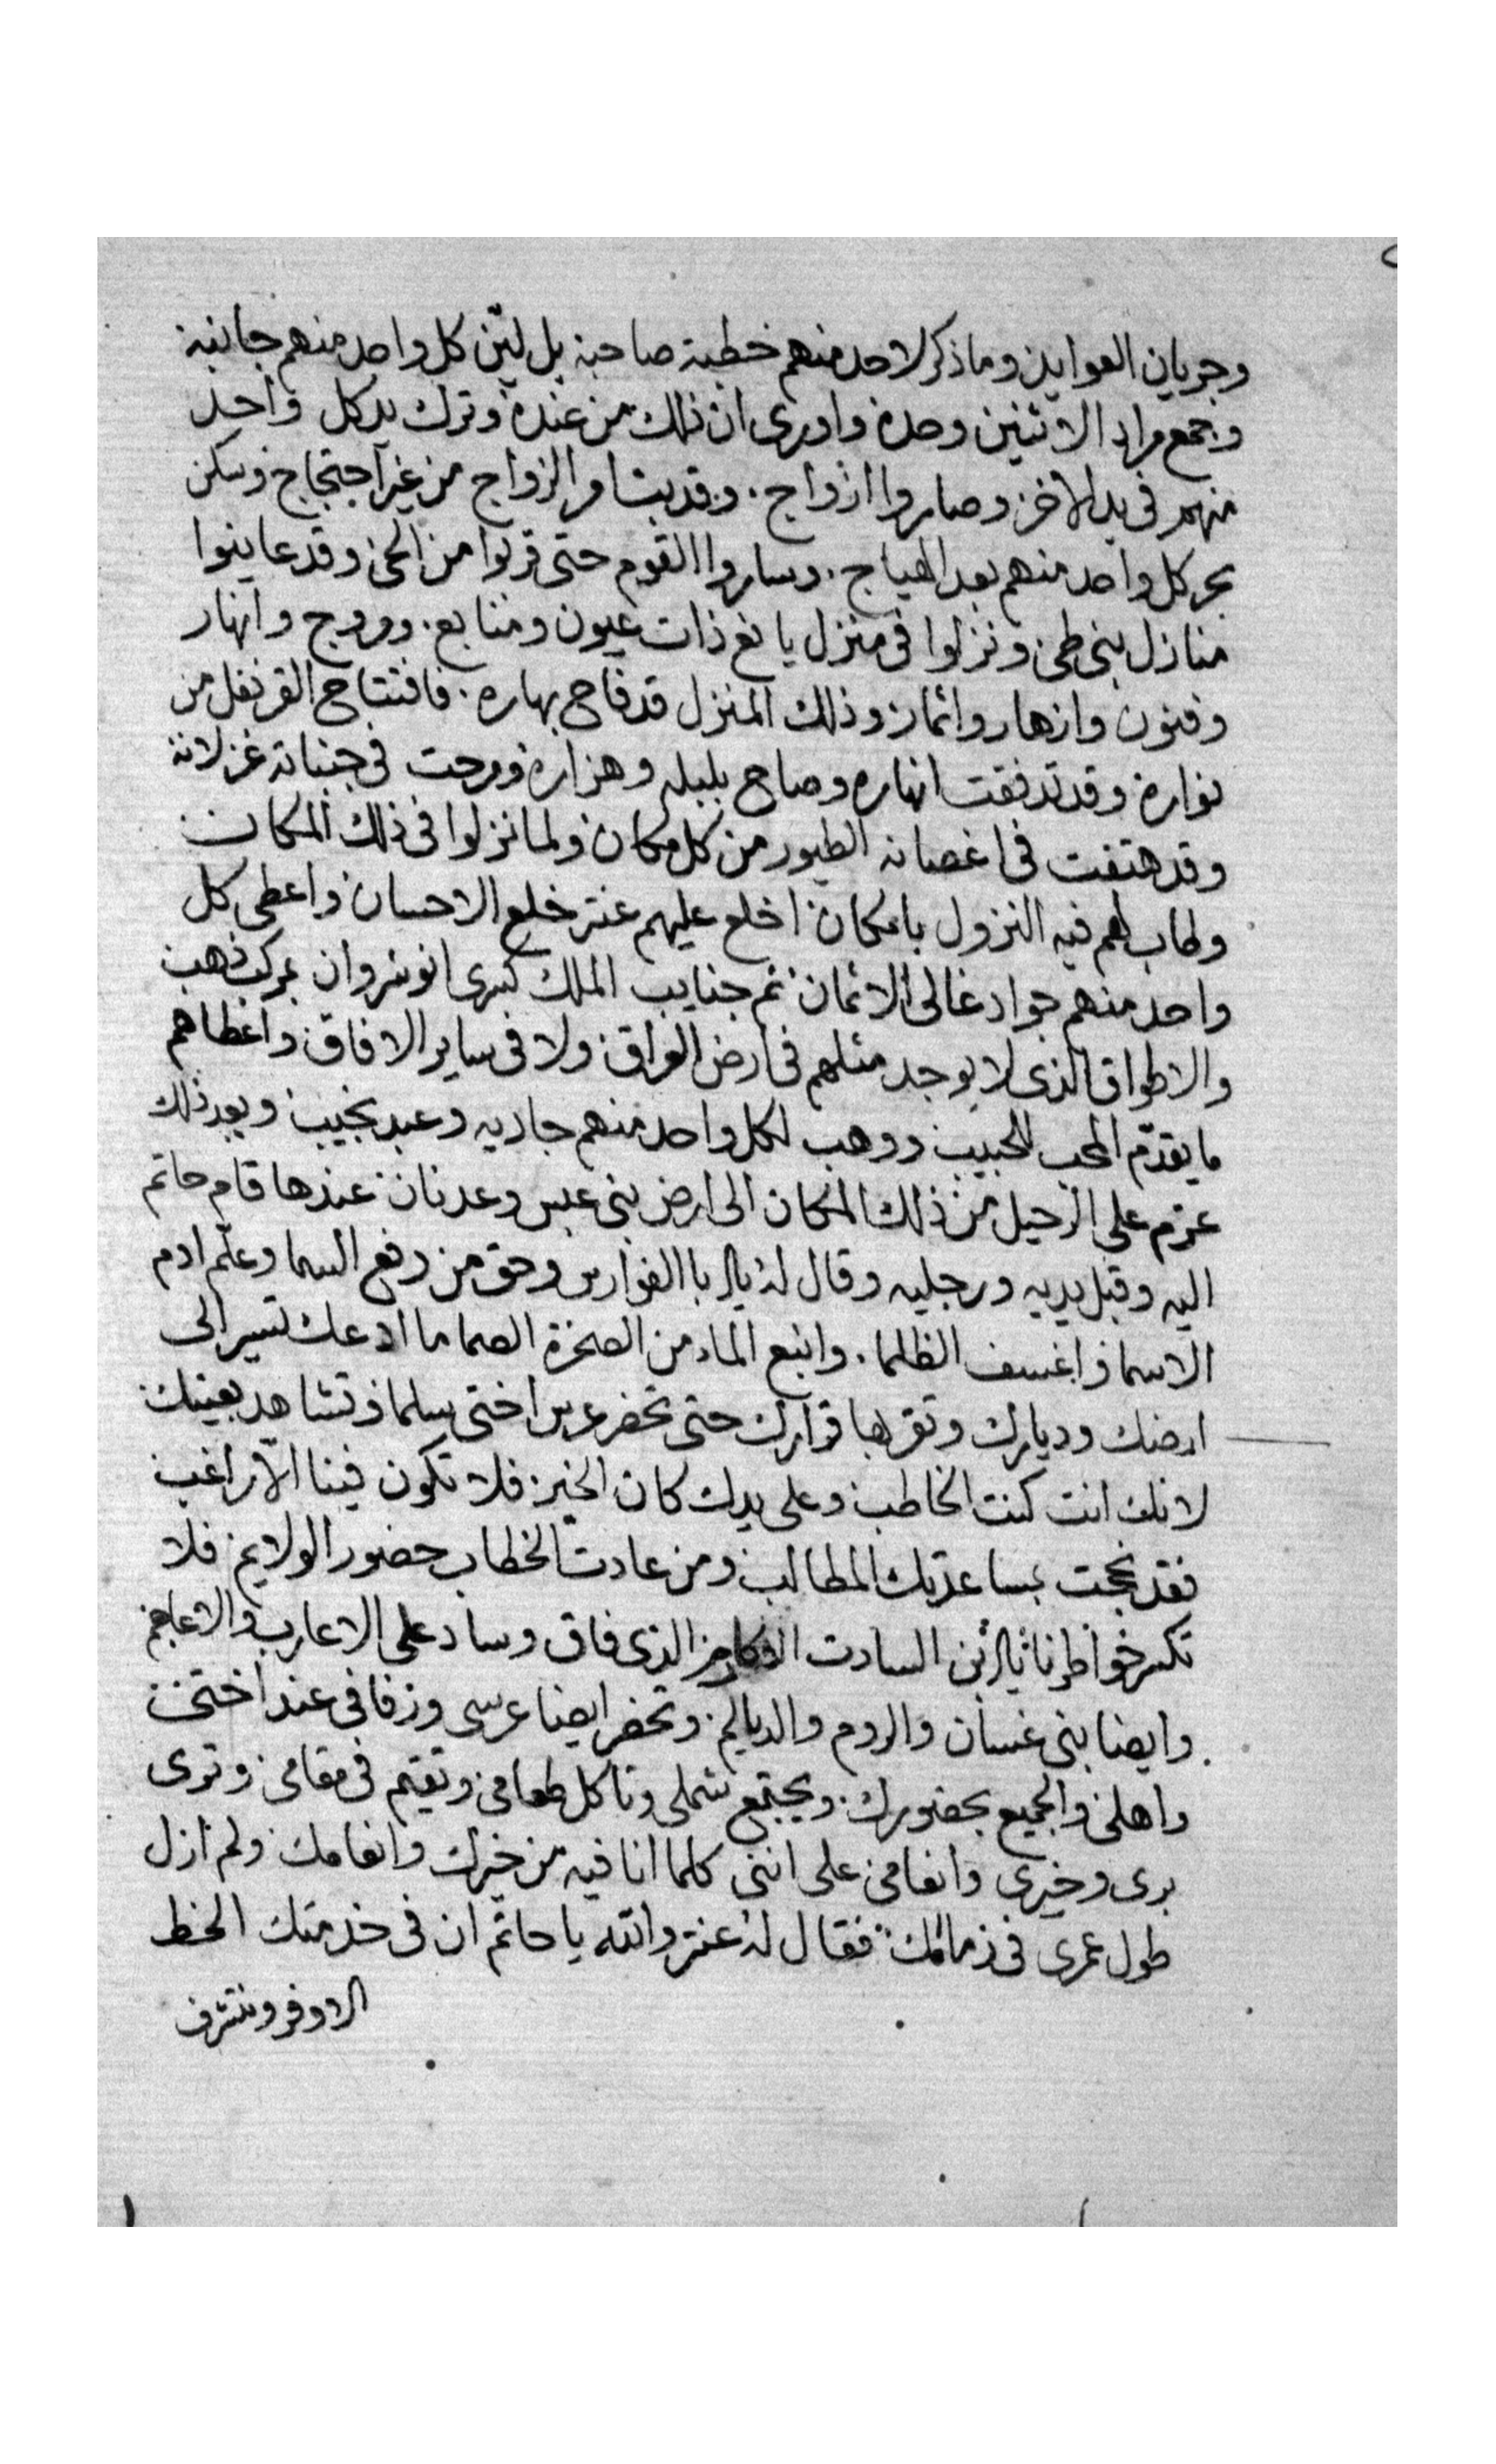 وجريان العوايد وما ذكر لاحد منهم خطبة صاحبه بل ليّن كل واحد منهم جانبه
وجمع مراد الاثنين وحده واورى ان ذلك من عنده وترك يد كل واحد
منهم فى يد الاخر وصاروا ازواج . وقد بتا امر الزواج من غير احتجاج وسكن
بحر كل واحد منهم بعد الهياج . وساروا القوم حتى قربوا من الحى وقد عاينوا
منازل بنى طى ونزلوا فى منزل يانع ذات عيون ومنابع . ومروج وانهار
وفنون وازهار واثمار وذلك المنزل قد فاح بهاره . فافتتاح القرنفل من
نواره وقد تدفقت انهاره وصاح بلبله وهزاره ومرحت فى جنباته غزلانه
وقد هتفت فى اغصانه الطيور من كل مكان ولما نزلوا فى ذلك المكان
وطاب لهم فيه النزول بامكان اخلع عليهم عنتر خلع الاحسان واعطى كل
واحد منهم جواد غالى الاثمان ثم جنايب الملك كسرى انوشروان بمركب ذهب
والاطواق الذى لا يوجد مثلهم فى ارض العراق ولا فى ساير الافاق واعطاهم
ما يقدّم المحب للحبيب ووهب لكل واحد منهم جاديه وعبد نجيب وبعد ذلك
عزم على الرحيل من ذلك المكان الى ارض بنى عبس وعدنان عندها قام حاتم
اليه وقبل يديه ورجليه وقال له يا ابا الفوارس وحق من رفع السما وعلّم ادم
الاسما واغسف الظلما . وانبع الماء من الصخرة الصما ما ادعك تسير الى
ارضك وديارك وتقر بها قرارك حتى تحضر عرس اختى سلما وتشاهد بعينك
لانك انت كنت الخاطب وعلى يدك كان الخير فلا تكون فينا الا راغب
فقد نجحت بمساعدتك المطالب ومن عادت الخطاب حضور الولايم فلا
تكسر خواطرنا يا ابن السادت الاكارم الذى فاق وساد على الاعارب والاعاجم
وايضا بنى غسان والروم والديالم . وتحضر ايضا عرسى وزفافى عند اختى
واهلى والجميع بحضورك . ويجتمع شملى وتاكل طعامى وتقيم فى مقامى وترى
برى وخيرى وانعامى على اننى كلما انا فيه من خيرك وانعامك ولم ازل
طول عمرى فى زمامك فقال له عنتر والله يا حاتم ان فى خدمتك الحظ
الاوفر ونتشرف